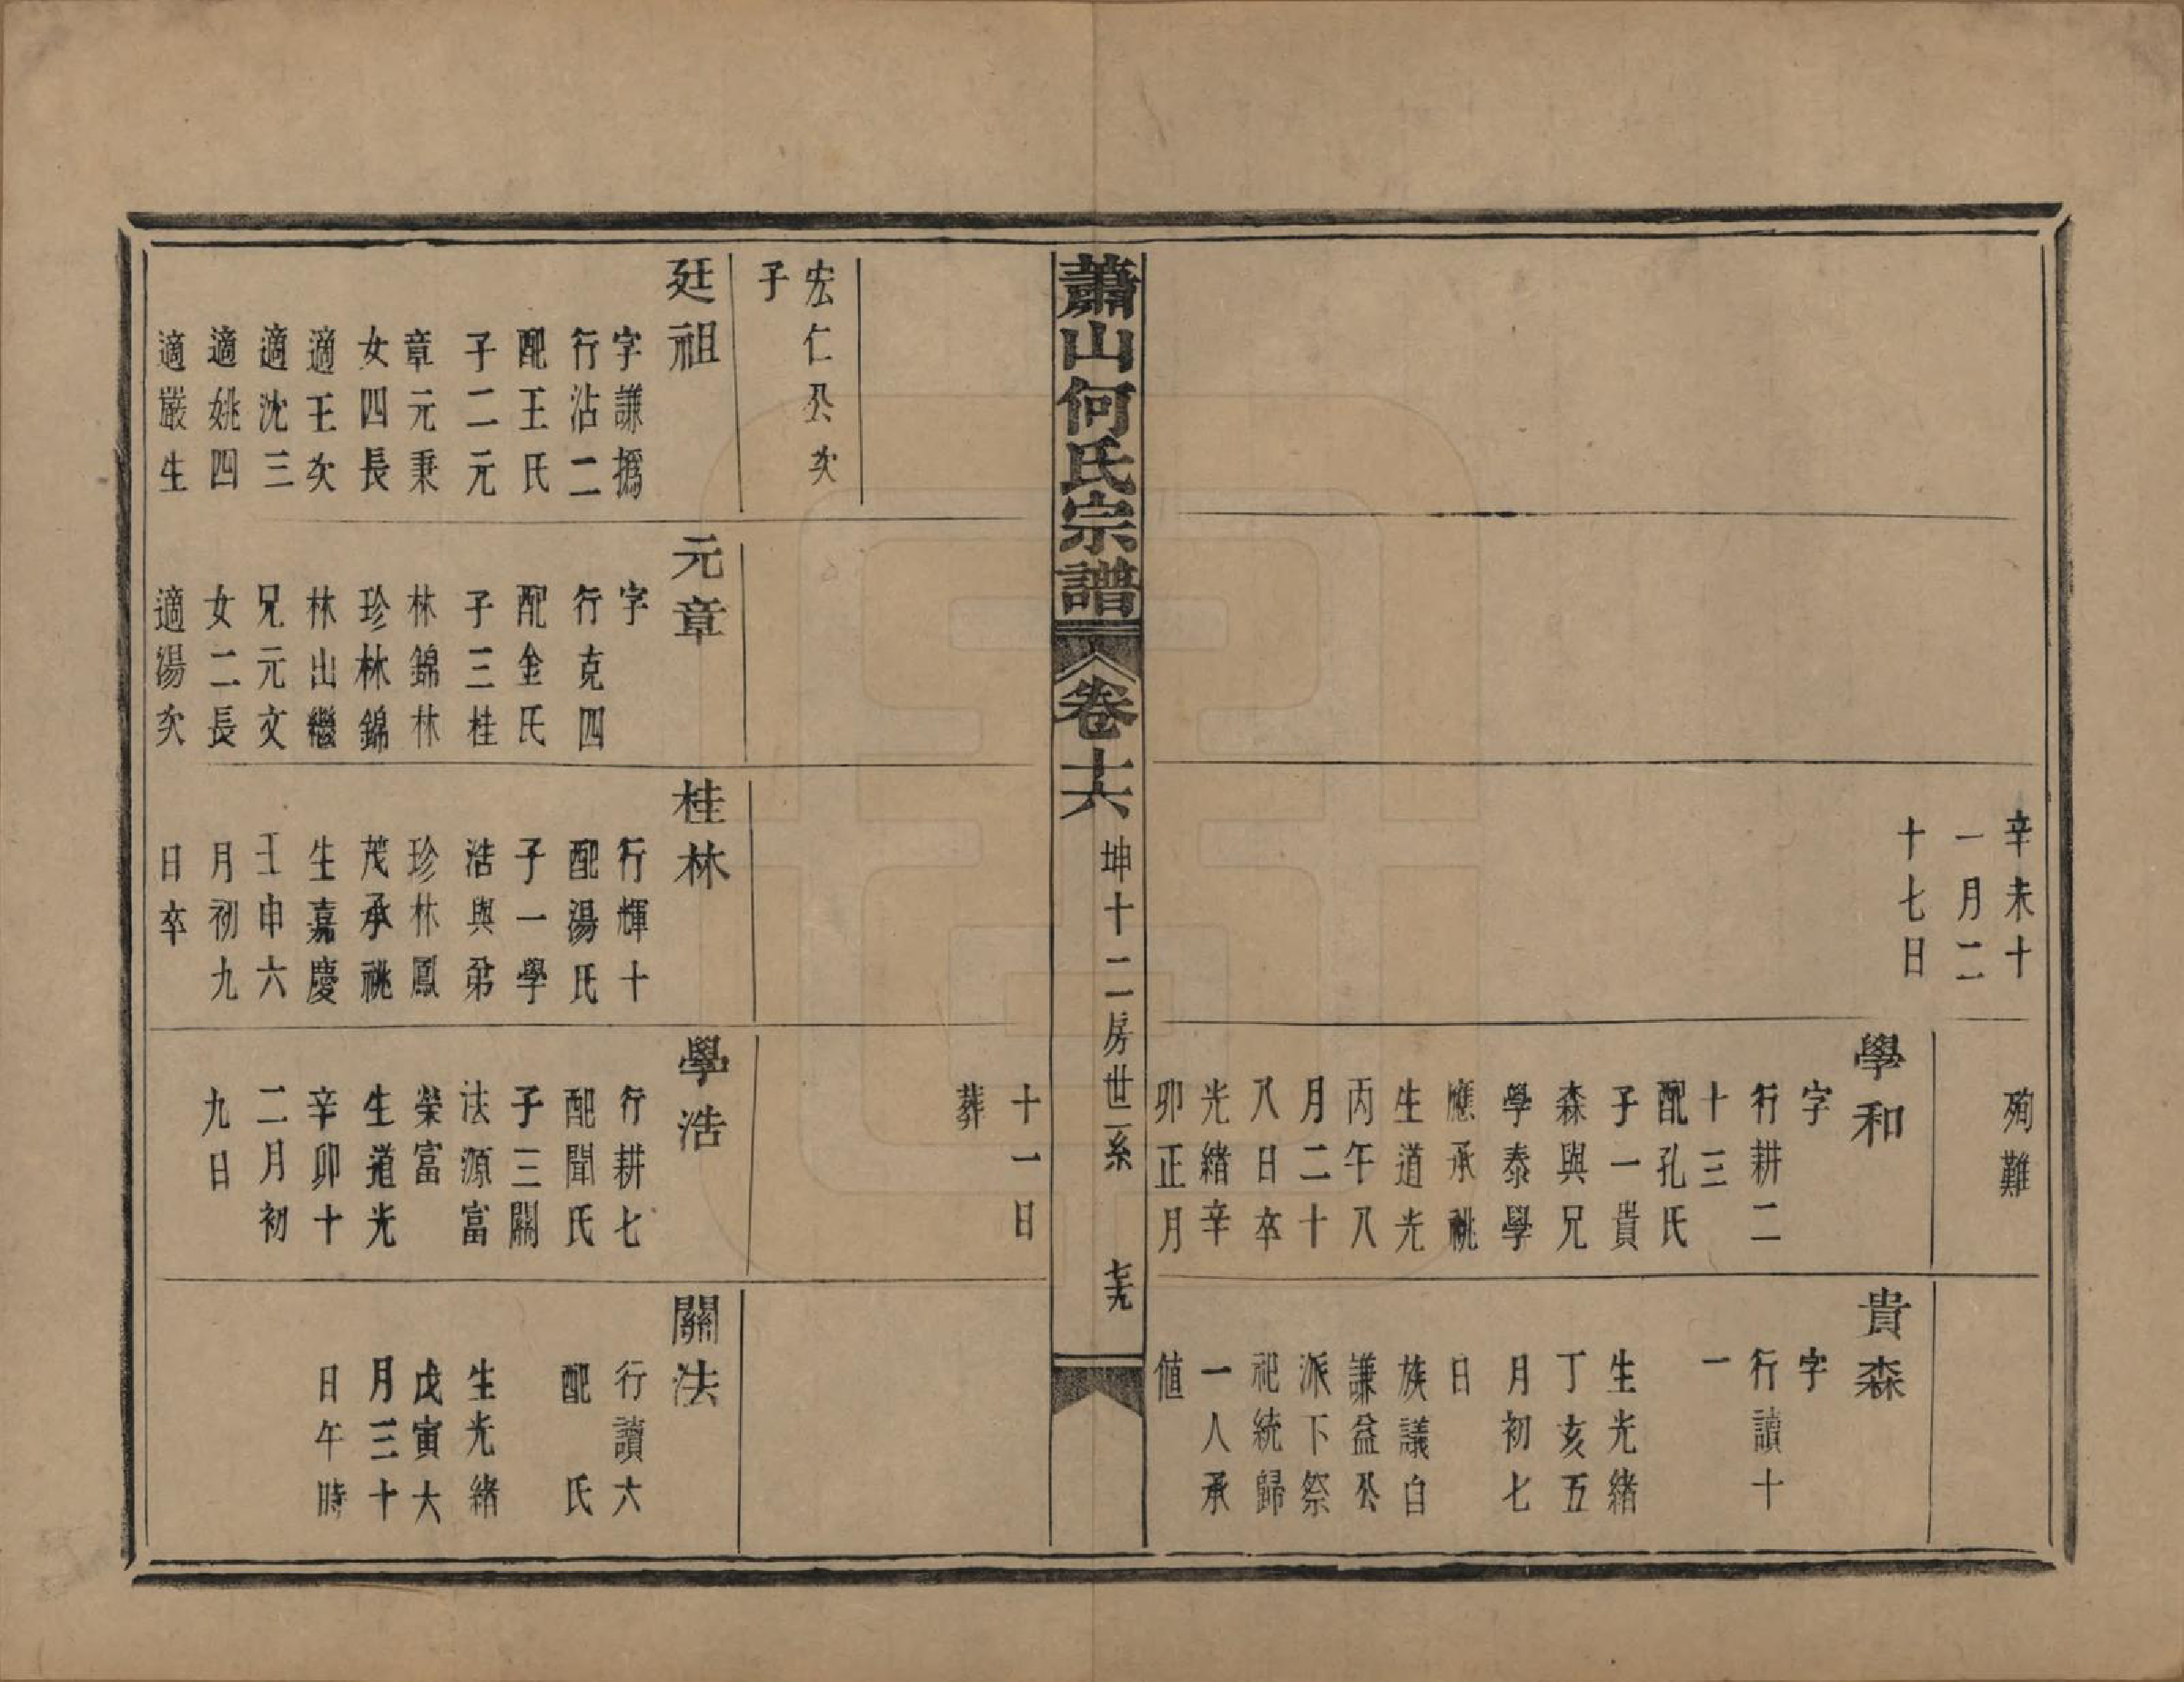 辛未十
一月二
十七日
殉難
學和
字
行耕二
十三
配孔氏
子一貴
森與兄
學泰學
應承祧
生道光
丙午八
月二十
八日卒
光緒辛
卯正月
貴森
字
行讀十
一
生光緒
丁亥五
月初七
日
族議自
謙益公
派下祭
祀統歸
一人承
值
蕭山何氏宗譜
卷十六
坤十二房世系
十一日
葬
宏仁公次
子
廷祖
字謙撝
行沾二
配王氏
子二元
章元秉
女四長
適王次
適沈三
適姚四
適嚴生
元章
字
行克四
配金氏
子三桂
林錦林
珍林錦
林出繼
兄元文
女二長
適湯次
桂林
行輝十
配湯氏
子一學
浩與弟
珍林鳳
茂承祧
生嘉慶
壬申六
月初九
日卒
學浩
行耕七
配聞氏
子三關
法源富
榮富
生道光
辛卯十
二月初
九日
關法
行讀六
配　氏
生光緒
戊寅大
月三十
日午時